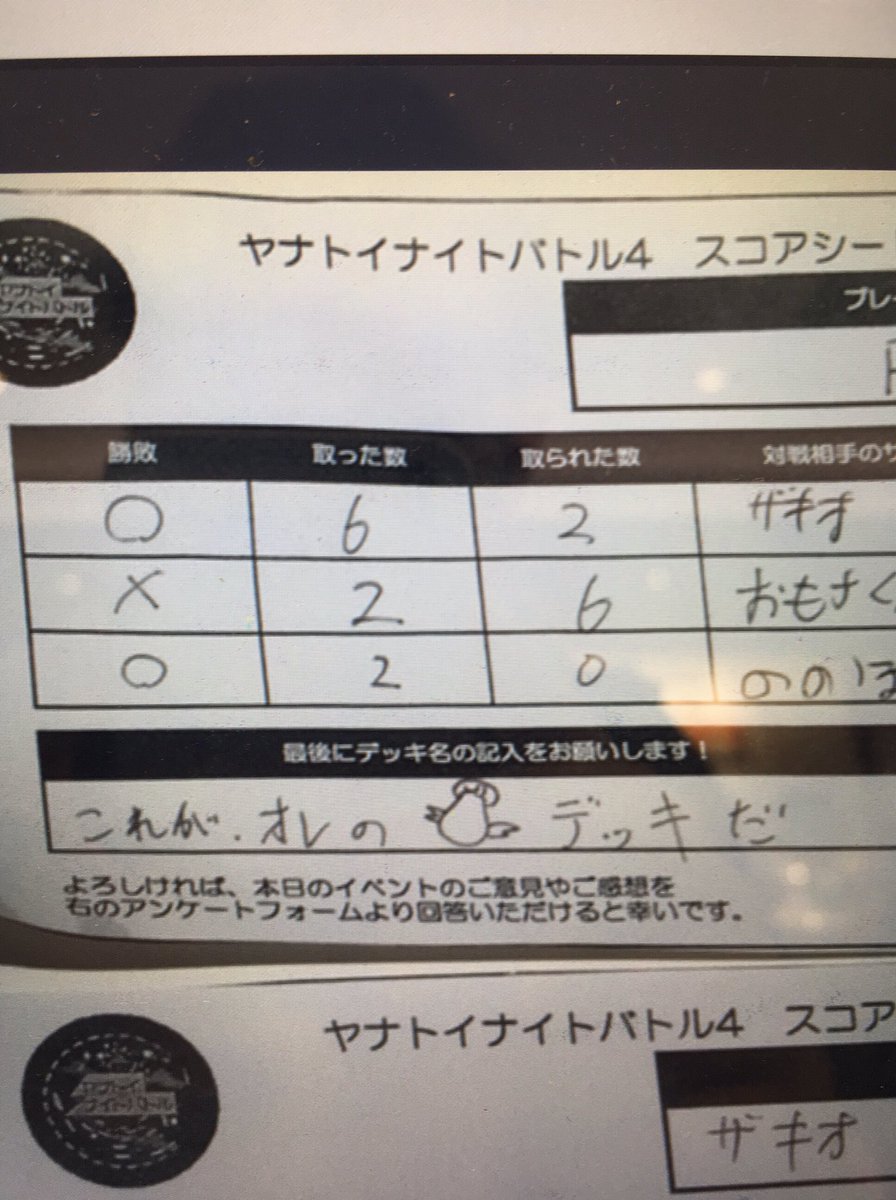 ヤナトイナイトバトル4 スコアシー
プレー
勝敗 取った数 取られた数 対戦相手の
○ 6 2 ザキオ
× 2 6 おもさく
○ 2 0 ののほ
最後にデッキ名の記入をお願いします!
これが、オレの デッキだ
よろしければ、本日のイベントのご意見やご感想を
右のアンケートフォームより回答いただけると幸いです。
ヤナトイ
ナイトバトル
ヤナトイナイトバトル4 スコア
ザキオ
ヤナトイ
ナイトバトル